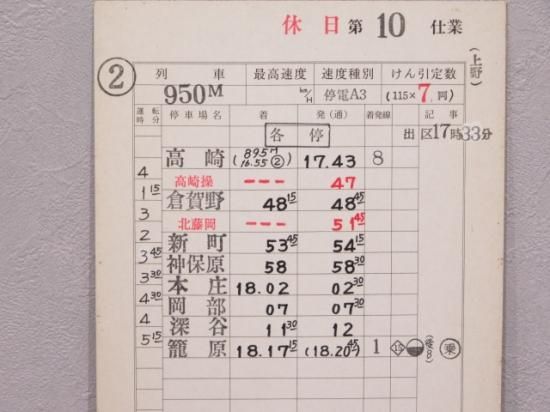 休日第10仕業
(上野)
② 列車 最高速度 速度種別 けん引定数
950M km/H 停電A3 (115×7両)
運転時分 停車場名 着 発(通) 着発線 記事
各停 出区17時33分
高崎 (895M 16.55②) 17.43 8
4
高崎操 --- 47
1 15
倉賀野 48 15 48 45
3
北藤岡 --- 51 45
2
新町 53 45 54 15
3 45
神保原 58 58 30
3 30
本庄 18.02 02 30
4 30
岡部 07 07 30
4
深谷 11 30 12
5 15
籠原 18.17 15 (18.20 45) 1 15 乗